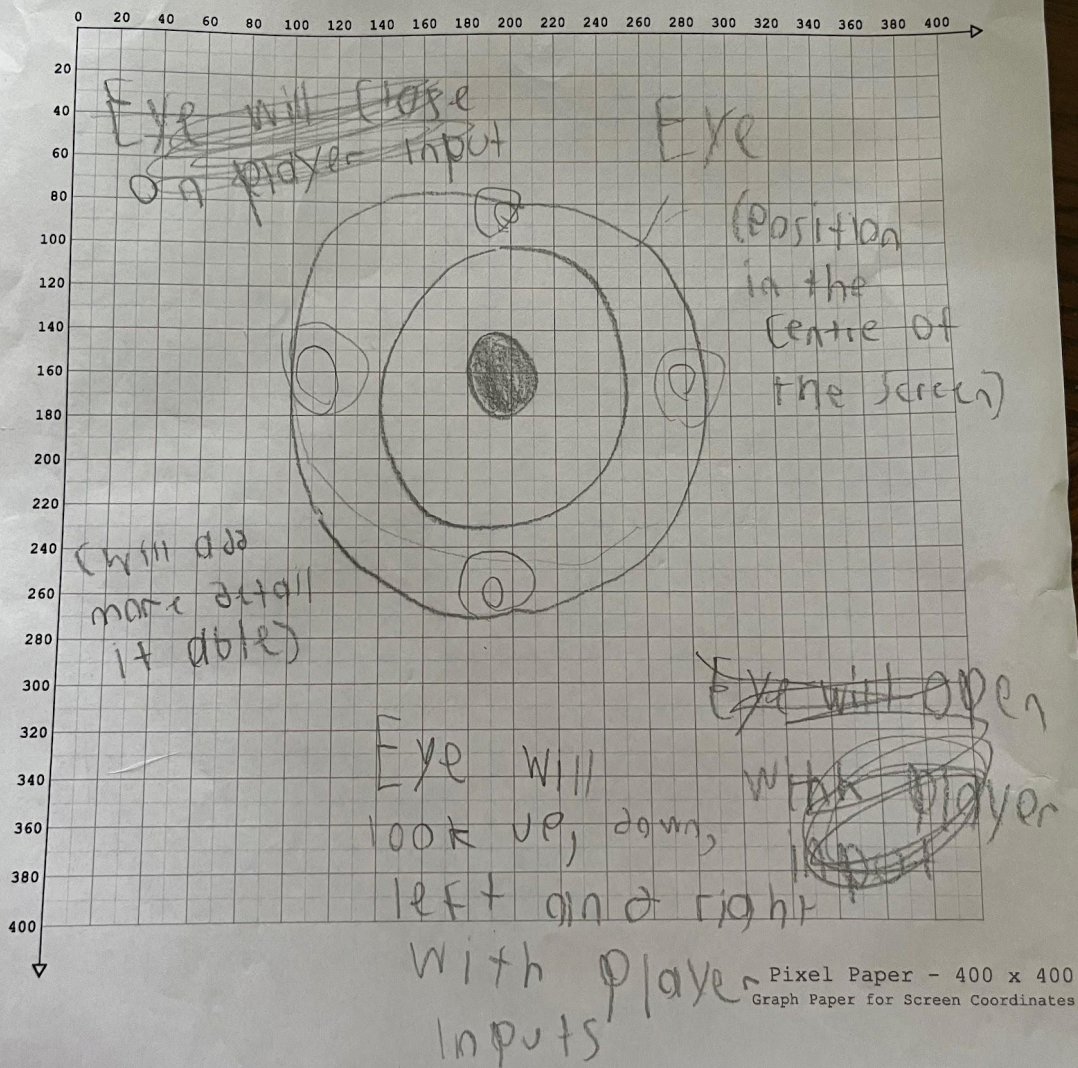 0 20 40 60 80 100 120 140 160 180 200 220 240 260 280 300 320 340 360 380 400
20
40
60
80
100
120
140
160
180
200
220
240
260
280
300
320
340
360
380
400
Eye will close
on player input
Eye
(Position
in the
centre of
the screen)
(will add
more detail
if able)
Eye will open
with player
input
Eye will
look up, down,
left and right
with player
inputs
Pixel Paper - 400 x 400
Graph Paper for Screen Coordinates